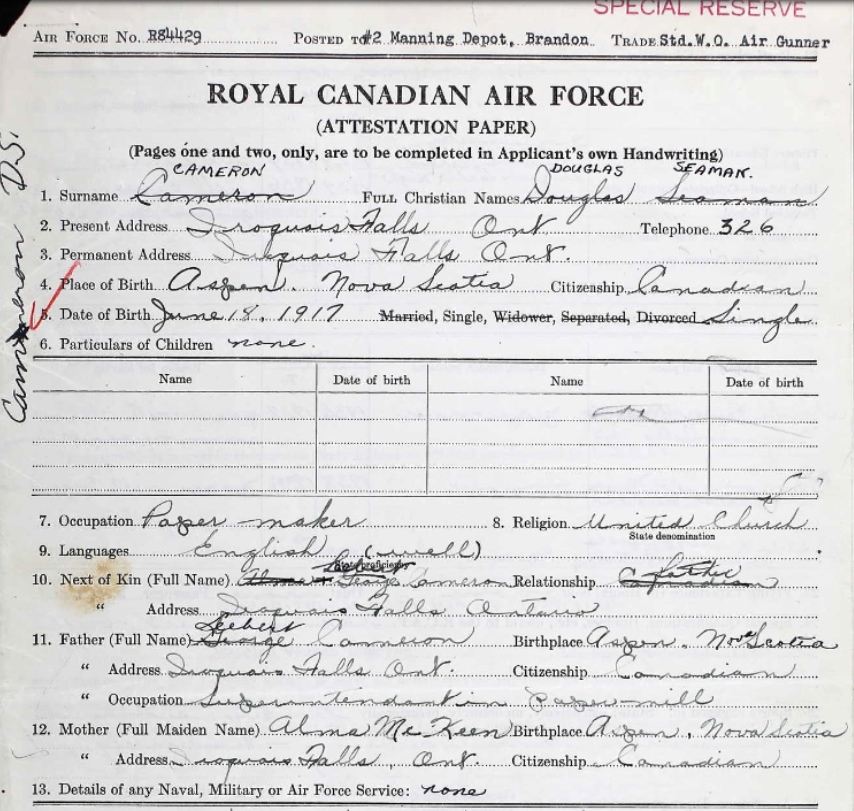 SPECIAL RESERVE
AIR FORCE No. R84429 POSTED TO #2 Manning Depot, Brandon TRADE Std.W.O. Air Gunner
ROYAL CANADIAN AIR FORCE
(ATTESTATION PAPER)
(Pages one and two, only, are to be completed in Applicant's own Handwriting)
CAMERON DOUGLAS SEAMAN.
1. Surname Cameron FULL Christian Names Douglas Seaman
2. Present Address Iroquois Falls Ont Telephone 326
3. Permanent Address Iroquois Falls Ont.
4. Place of Birth Aspen. Nova Scotia Citizenship Canadian
5. Date of Birth June 18, 1917 Married, Single, Widower, Separated, Divorced Single
6. Particulars of Children none.
Name Date of birth Name Date of birth
7. Occupation Paper-maker 8. Religion United Church
State denomination
9. Languages English (well)
State proficiency
10. Next of Kin (Full Name) George Cameron Relationship father
" Address Iroquois Falls Ontario
11. Father (Full Name) George Cameron Birthplace Aspen, Nova Scotia
" Address Iroquois Falls Ont. Citizenship Canadian
" Occupation Superintendant in Paper-mill
12. Mother (Full Maiden Name) Alma McKeen Birthplace Aspen, Nova Scotia
" Address Iroquois Falls, Ont. Citizenship Canadian
13. Details of any Naval, Military or Air Force Service: none
Cameron D.S.